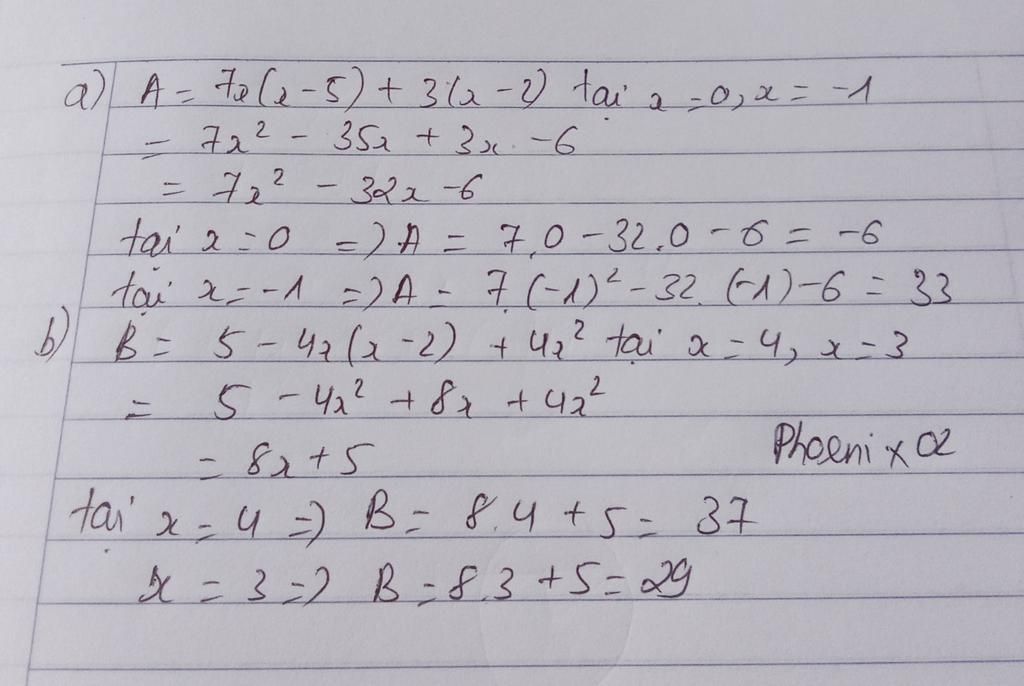 a) A = 7x(x-5) + 3(x-2) tại x=0, x = -1
= 7x² - 35x + 3x - 6
= 7x² - 32x - 6
tại x = 0 => A = 7.0 - 32.0 - 6 = -6
tại x = -1 => A = 7.(-1)² - 32.(-1) - 6 = 33
b) B = 5 - 4x(x-2) + 4x² tại x = 4, x = 3
= 5 - 4x² + 8x + 4x²
= 8x + 5
Phoenix 02
tại x = 4 => B = 8.4 + 5 = 37
x = 3 => B = 8.3 + 5 = 29